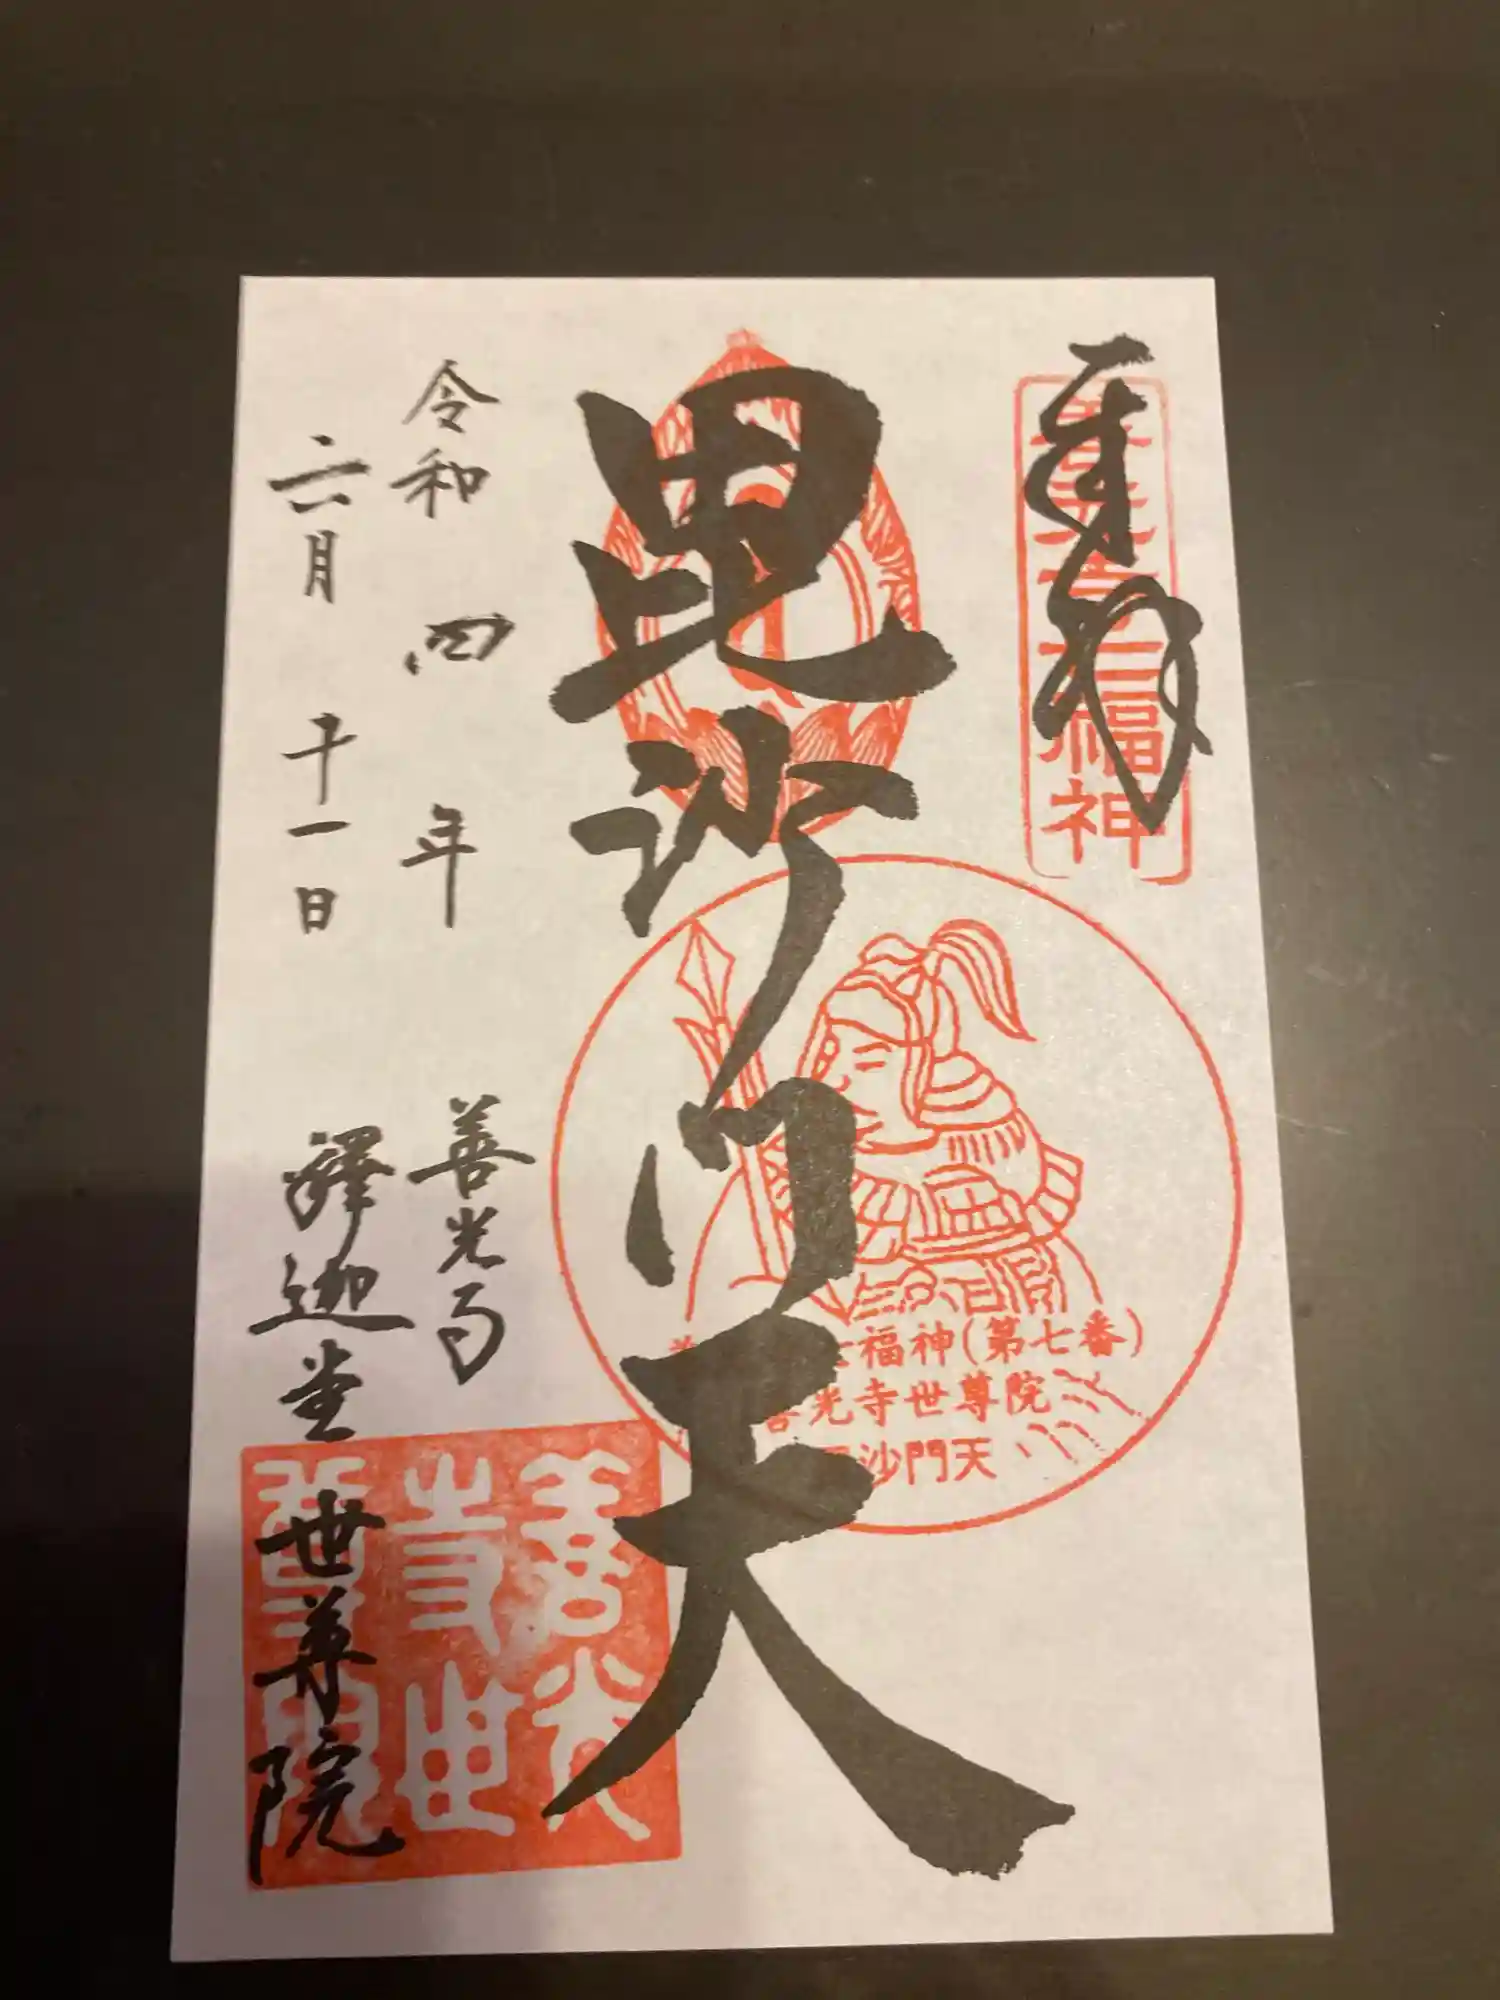 奉拝
善光寺七福神
毘沙門天
福神(第七番)
善光寺世尊院
毘沙門天
令和四年
六月十一日
善光寺
釋迦堂世尊院
善光
寺世
尊院